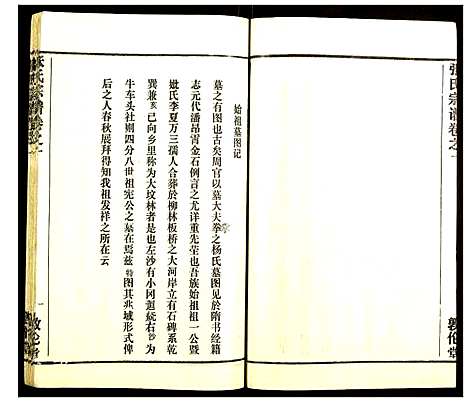 張氏宗譜卷之一
敦伦堂
始祖墓图记
墓之有图也古矣周官以墓大夫拳之杨氏墓图见於隋书经籍
志元代潘昂霄金石例言之尤详重先茔也吾族始祖祖一公暨
妣氏李夏万三孺人合葬於柳林板桥之大河岸立有石碑系乾
巽兼亥巳向乡里称为大坟林者是也左沙有小冈迴绕右沙为
牛车头社则四分八世祖宪公之墓在焉兹特图其兆域形式俾
后之人春秋展拜得知我祖发祥之所在云
张氏宗谱卷之一
一
敦伦堂